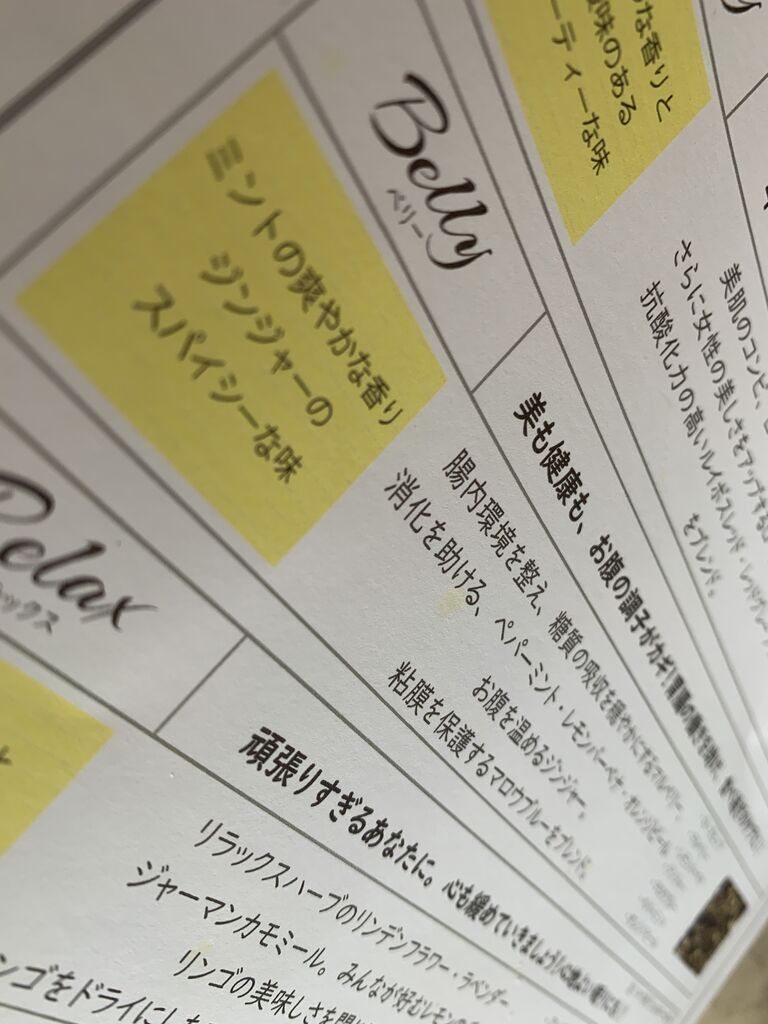 な香りと
味のある
ーティーな味
美肌のコンビ、
さらに女性の美しさをアップする
抗酸化力の高いルイボスレッド・レッドグレー
をブレンド。
Belly
ベリー
ミントの爽やかな香り
ジンジャーの
スパイシーな味
美も健康も、お腹の調子がカギ!
腸内環境を整え、糖質の吸収を緩やかにするマルベリー。
消化を助ける、ペパーミント・レモンバーベナ・オレンジピール
お腹を温めるジンジャー。
粘膜を保護するマロウブルーをブレンド。
Relax
ラックス
頑張りすぎるあなたに。心も緩めていきましょう!
リラックスハーブのリンデンフラワー・ラベンダー
ジャーマンカモミール。みんなが好むレモンの
リンゴの美味しさを
ンゴをドライにした